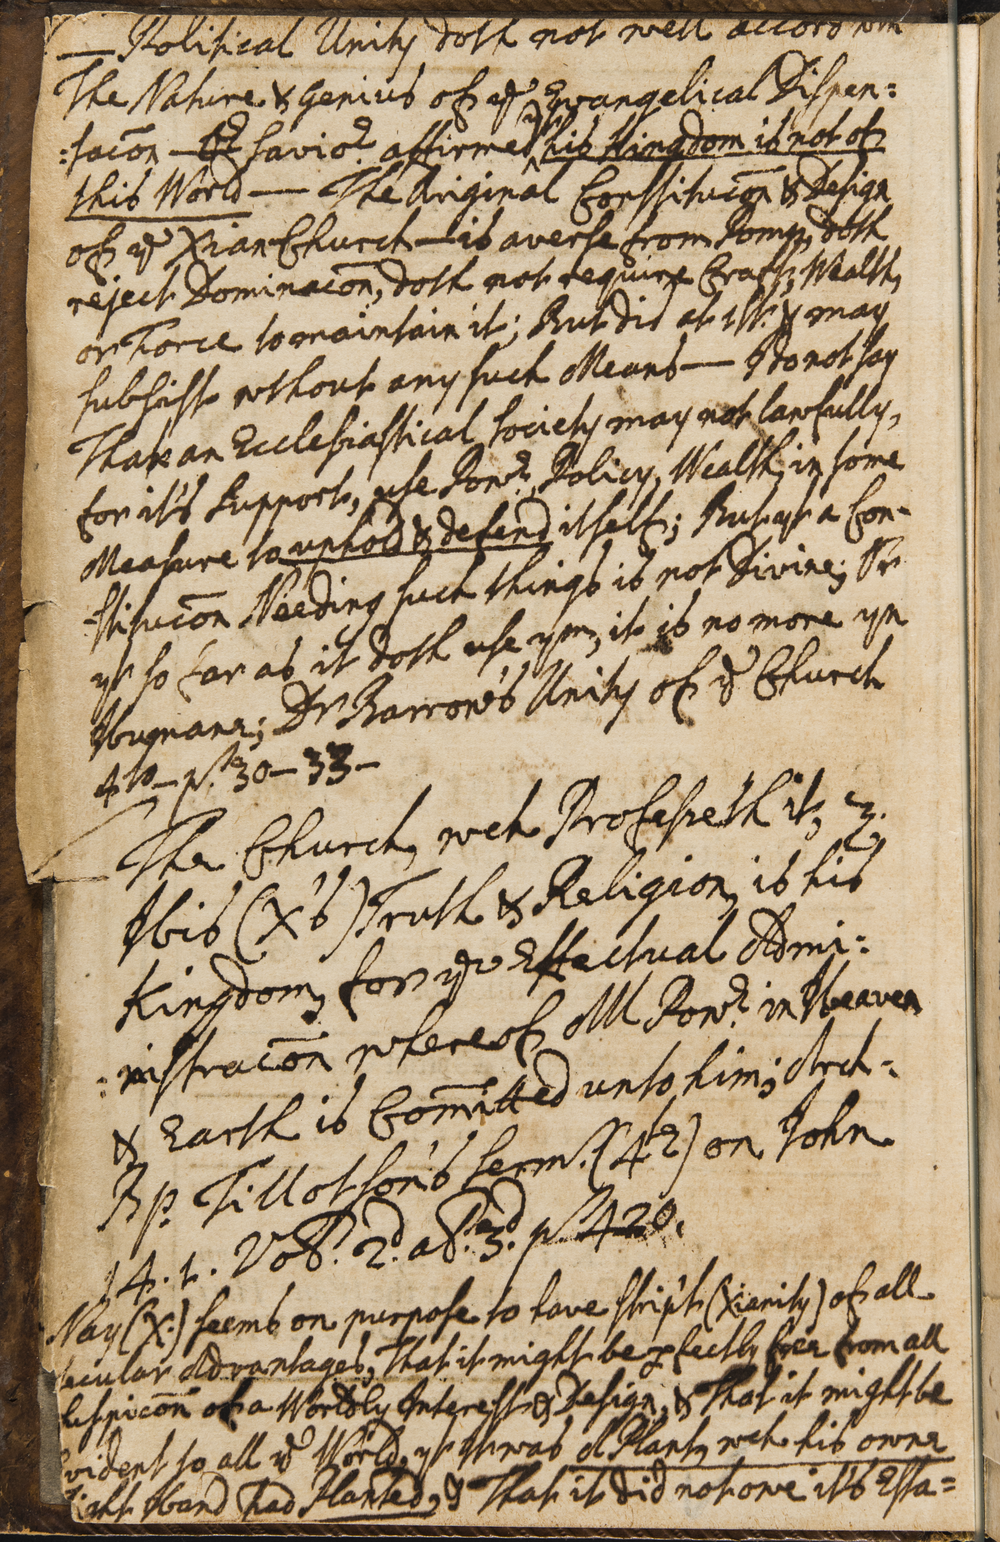 — Political Unity doth not well accord with
The Nature & Genius of yᵉ Evangelical Dispen:
:sacōn — Oʳ Savioʳ affirmed yᵗ his Kingdom is not of
this World — The Original Constitucōn & Design
of yᵉ Xian Church — is averse from Pomp, doth
reject Dominacōn, doth not require Craft, Wealth,
or Force to maintain it; But did at 1ˢᵗ & may
subsist without any such Means — I do not say
That an Ecclesiastical Society may not lawfully,
for it's Support, use Powʳ, Policy, Wealth, in some
Measure to uphold & defend itself; But yᵗ a Con-
:stitucōn Needing such things is not Divine; Or
yᵗ so far as it doth use yᵐ, it is no more yⁿ
Humane; Dʳ Barrow's Unity of yᵉ Church
4ᵗᵒ — pᵃ. 30 — 33 —
The Church, wᶜʰ Professeth it, z.
His (X's) Truth & Religion, is his
Kingdom, for yᵉ Effectual Admi:
:nistracōn whereof All Powʳ in Heaven
& Earth is Com̄itted unto him; Arch:
Bp. Tillotson's Serm. (42) on John
14. 1. Vol. 2ᵈ. a 3ᵈ. p. 420.
Nay (X:) seems on purpose to have stript (Xianity) of all
secular Advantages, That it might be pfectly free from all
suspicōn of a Worldly Interest & Design, & That it might be
Evident to all yᵉ World, yᵗ it was A Plant, wᶜʰ his owne
right Hand had Planted, & That it did not owe it's Esta=